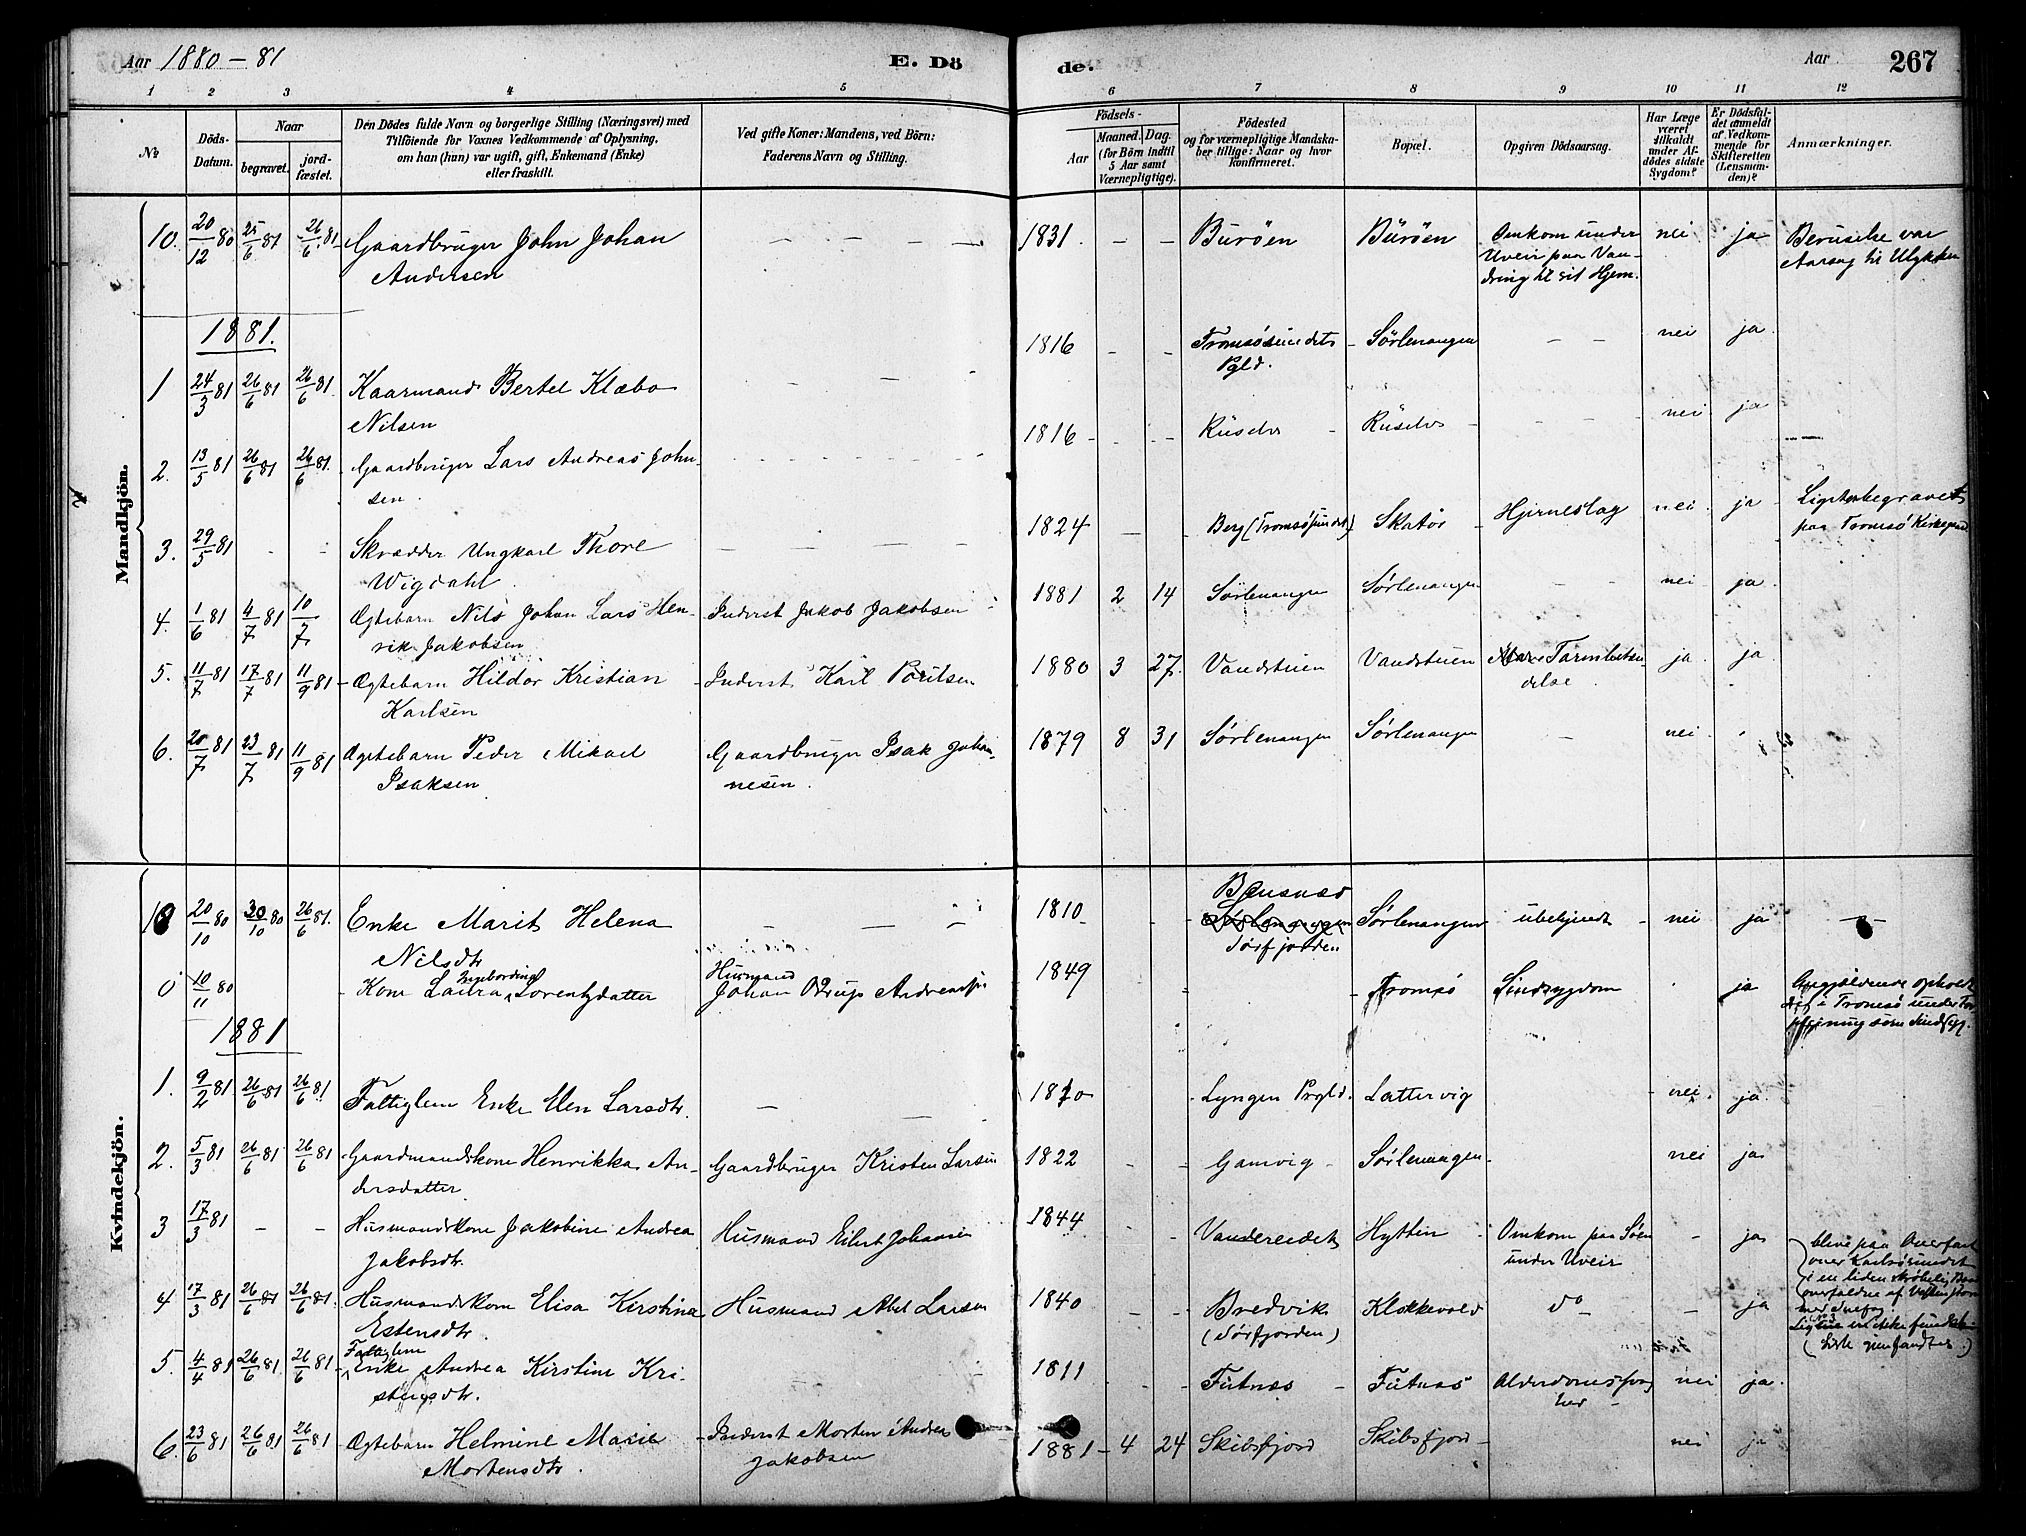 Aar 1880-81
E. Dö
de.
Aar
267
1 2 3 4 5 6 7 8 9 10 11 12
№
Döds-
Datum.
Naar
begravet.
jord-
fæstet.
Den Dödes fulde Navn og borgerlige Stilling (Næringsvei) med
Tilföiende for Voxnes Vedkommende af Oplysning,
om han (hun) var ugift, gift, Enkemand (Enke)
eller fraskilt.
Ved gifte Koner: Mandens, ved Börn:
Faderens Navn og Stilling.
Födsels-
Aar
Maaned. Dag.
(for Börn indtil
5 Aar samt
Værnepligtige).
Födested
og for værnepligtige Mandska-
ber tillige: Naar og hvor
konfirmeret.
Bopæl.
Opgiven Dödsaarsag.
Har Læge
været
tilkaldt
under Af-
dödes sidste
Sygdom?
Er Dödsfal-
det anmeldt
af Vedkom-
mende for
Skifteretten
(Lensman-
den)?
Anmærkninger.
Mandkjön.
10. 20/12 80 25/6 81 26/6 81 Gaardbruger John Johan
Andersen
1831. Buröen Buröen Omkom under
Uveir paa Van-
dring til sit Hjem.
nei ja Beruselse var
Aarsag til Ulykken
1881.
1 24/3 81 26/6 81 26/6 81 Kaarmand Bertel Klæbo
Nilsen
1816 Tromsösundets
Pgld.
Sörlenangen nei ja
2. 13/5 81 26/6 81 26/6 81. Gaardbruger Lars Andreas John-
sen.
1816 Ruselv Ruselv nei ja
3. 29/5 81 Skrædder Ungkarl Thore
Wigdahl
1824 Berg (Tromsösundet) Skatör Hjerneslag nei ja Liget begravet
paa Tromsö Kirkegaard
4. 1/6 81 4/7 81 10/7 Ægtebarn Nils Johan Lars Hen-
rik Jakobsen
Inderst Jakob Jakobsen
1881 2 14 Sörlenangen Sörlenangen nei ja.
5. 11/7 81 17/7 81 11/9 81 Ægtebarn Hildor Kristian
Karlsen
Inderst Karl Poulsen
1880 3 27. Vandstuen Vandstuen Tarmbetæn-
delse
ja ja
6. 20/7 81 23/7 81 11/9 81 Ægtebarn Peder Mikael
Isaksen
Gaardbruger Isak Johan-
nesen.
1879 8 31 Sörlenangen Sörlenangen nei
Kvindekjön.
10 20/10 80 30/10 80 26/6 81. Enke Marit Helena
Nilsdtr
1810 Bensnæs
Sörlenangen
Sörfjorden
Sörlenangen ubekjendt nei ja
0 10/11 80 Kone Laura Ingebordine Lorentzdatter
Husmand
Johan Andreas
1849 Tromsö Sindsygdom ja Angjældende opholdt
sig i Tromsö under For-
plejning som Sindsyg.
1881
1. 9/2 81. 26/6 81 26/6 81 Fattiglem Enke Elen Larsdtr.
1810 Lyngen Prgld. Lattervig nei ja
2. 5/3 81 26/6 81 26/6 81 Gaardmandskone Henrikka An-
dersdatter
Gaardbruger Kristen Larsen
1822 Gamvig Sörlenangen. nei ja
3 17/3 81 Husmandskone Jakobine Andrea
Jakobsdtr.
Husmand Eilert Johansen
1844 Vandereidet Hytten Omkom paa Söen
under Uveir
ja
4 17/3 81 26/6 81 26/6 81. Husmandskone Elisa Kirstina
Estensdtr.
Husmand Abel Larsen
1840 Bredvik
(Sörfjorden)
Klokkevold do ja
bleve paa Overfart
over Karlsösundet
i en liden skröbelig Baad
overfaldne af Vestenstorm
med Snefog.
5. 4/4 81 26/6 81 26/6 81 Fattiglem
Enke Andrea Kirstine Kri-
stensdtr.
1811 Futnæs Futnæs Alderdomssvag-
hed
nei ja.
6. 23/6 81 26/6 81 26/6 81 Ægtebarn Helmine Marie
Mortensdtr.
Inderst Morten Andreas
Jakobsen
1881 4 24 Skibsfjord Skibsfjord nei ja